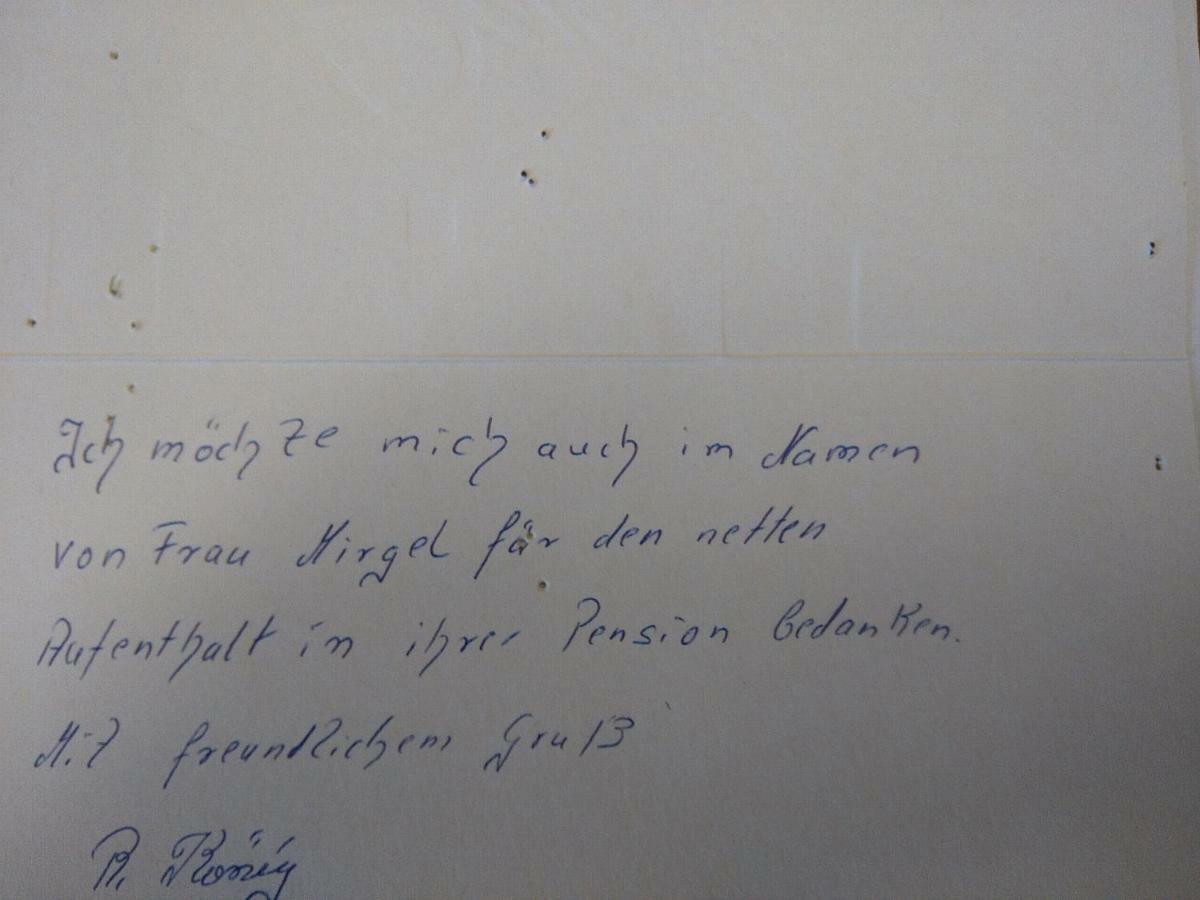 Ich möchte mich auch im Namen
von Frau Mirgel für den netten
Aufenthalt in ihrer Pension bedanken.
Mit freundlichem Gruß
R. König